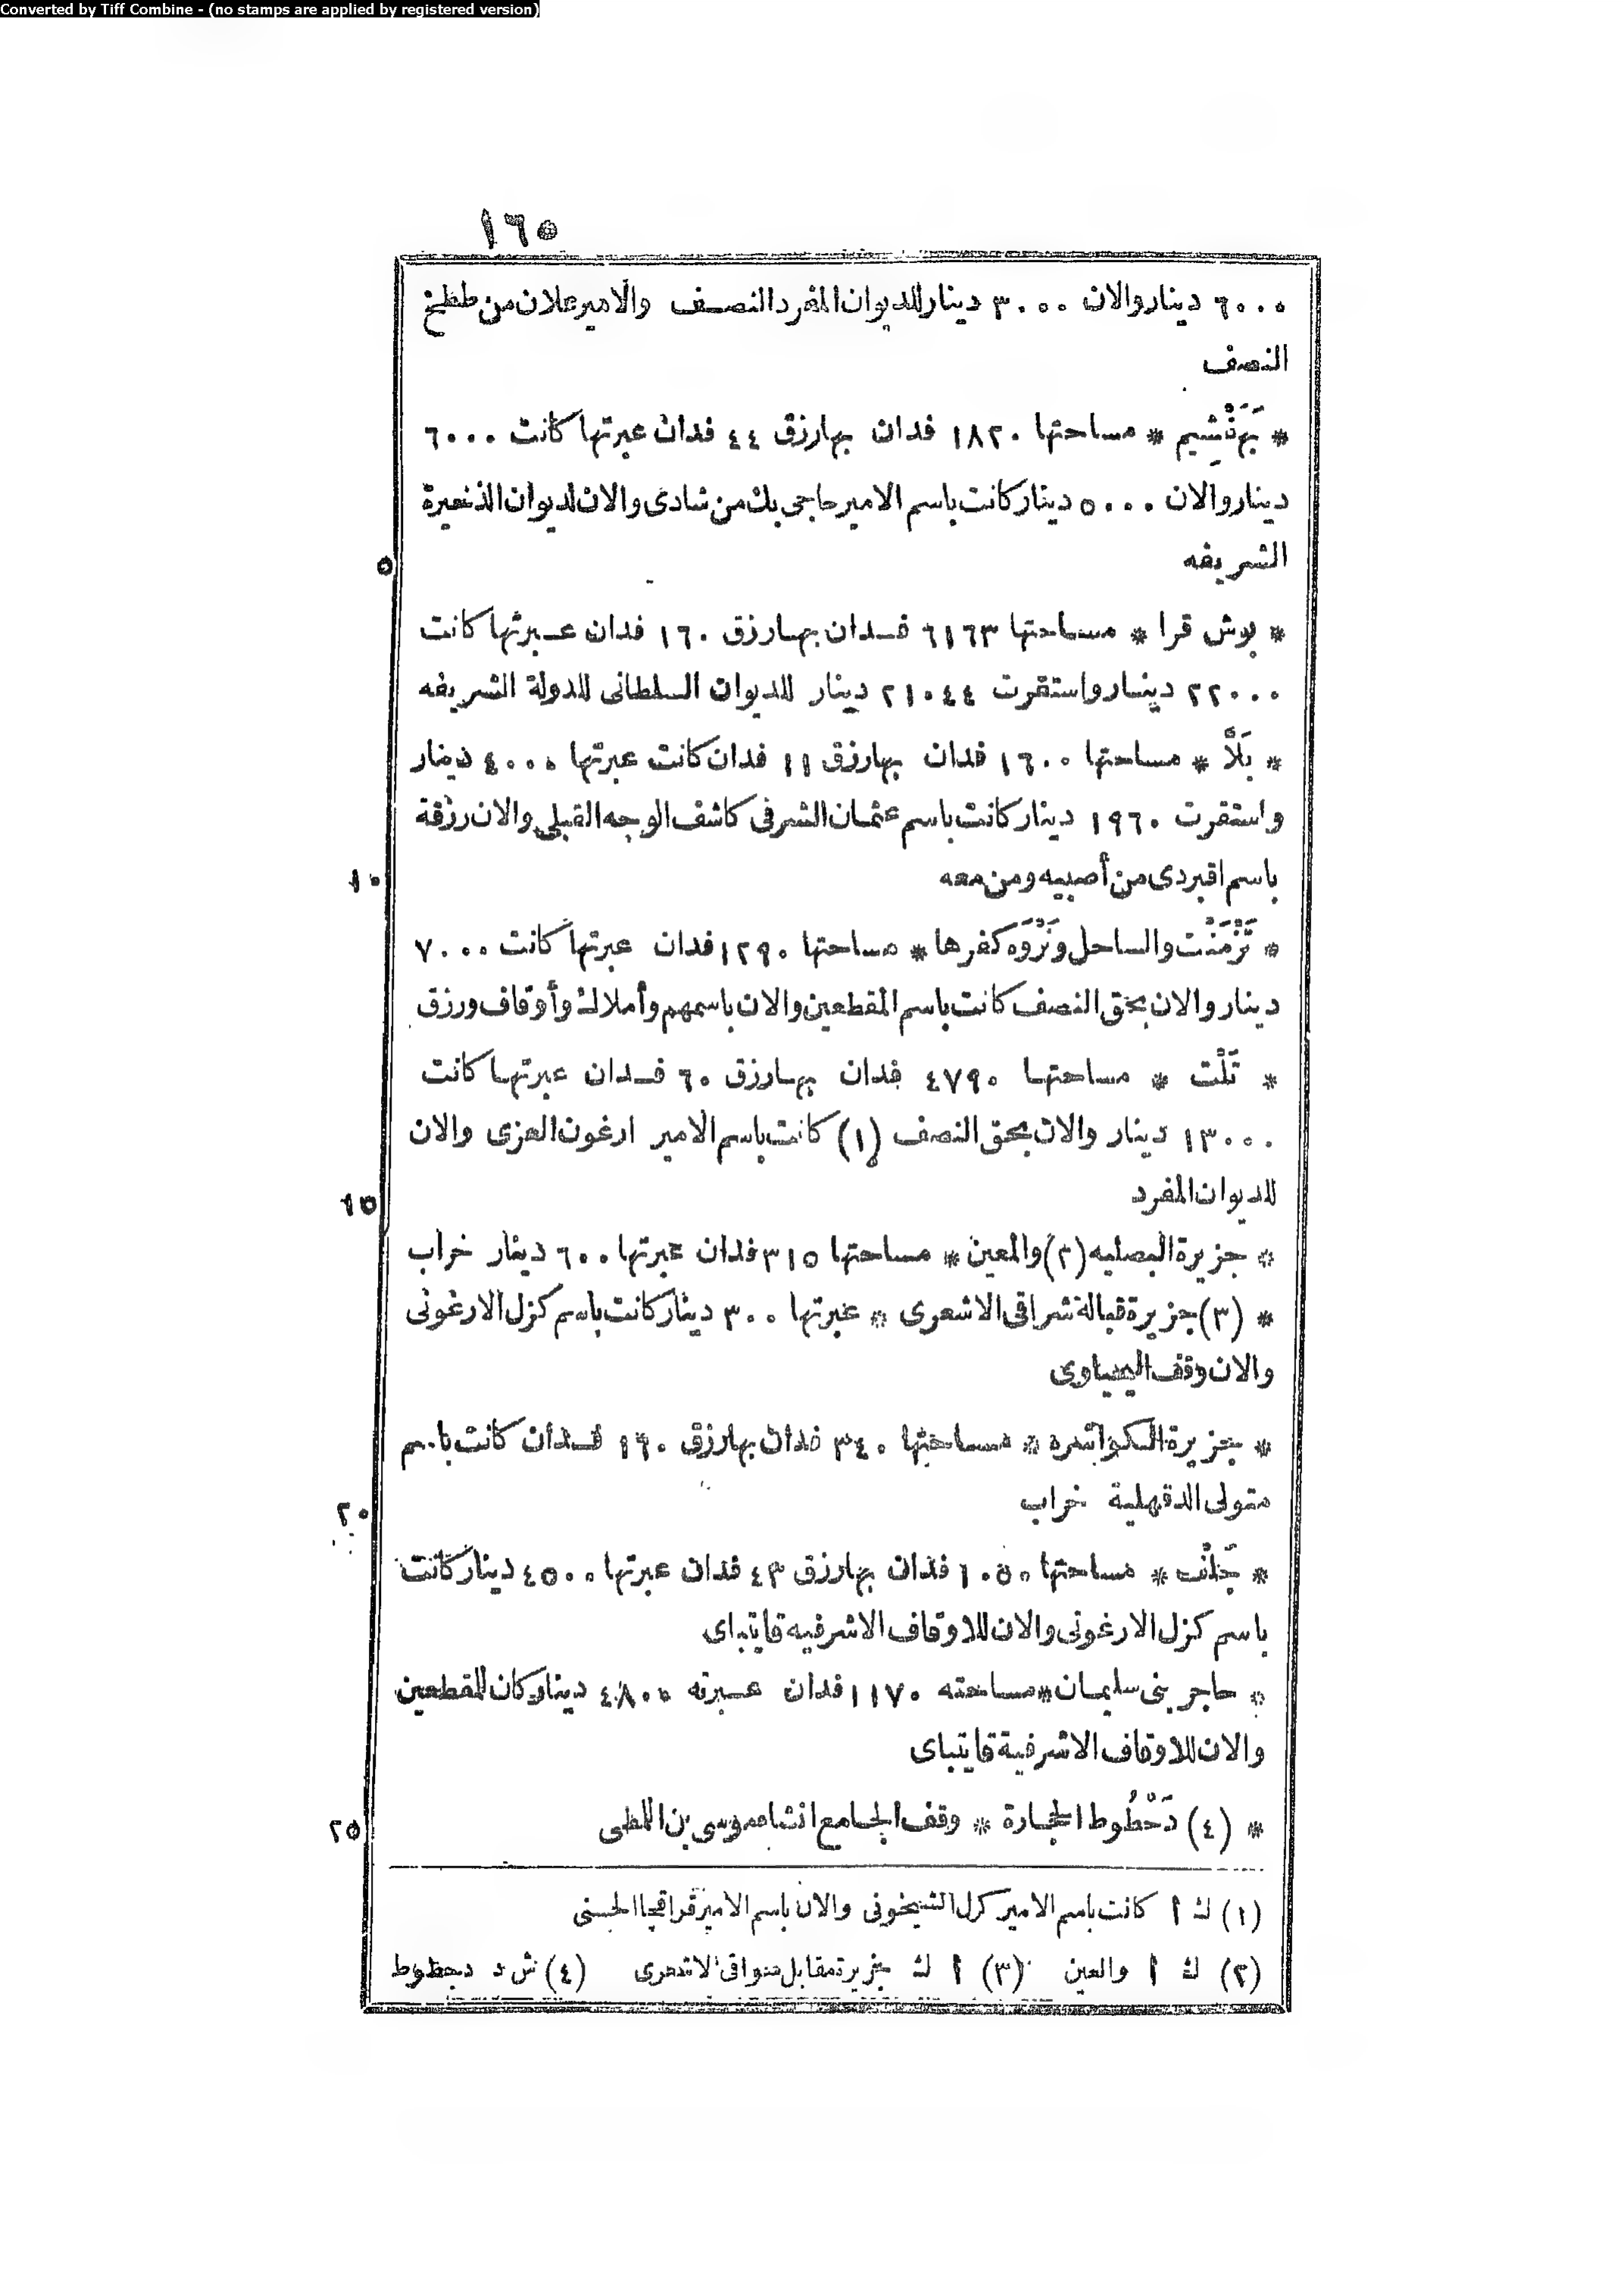 Converted by Tiff Combine - (no stamps are applied by registered version)
١٦٥
٦٠٠٠ دينار والان ٣٠٠٠ دينار للديوان المفرد النصف والامير علان من ططخ
النصف
* بَهَنْشِيم * مساحتها ١٨٢٠ فدان بها رزق ٤٤ فدان عبرتها كانت ٦٠٠٠
دينار والان ٥٠٠٠ دينار كانت باسم الامير حاجى بك من شادى والان لديوان الذخيرة
الشريفه
٥
* بوش قرا * مساحتها ٦١٦٣ فدان بها رزق ١٦٠ فدان عبرتها كانت
٢٢٠٠٠ دينار واستقرت ٢١٠٤٤ دينار للديوان السلطانى للدولة الشريفه
* بَلَاّ * مساحتها ١٦٠٠ فدان بها رزق ١١ فدان كانت عبرتها ٤٠٠٠ دينار
واستقرت ١٩٦٠ دينار كانت باسم عثمان الشرفى كاشف الوجه القبلى والان رزقة
باسم اقبردى من أصبيه ومن معه
١٠
* تَزْمَنْت والساحل ونَزْوَه كفرها * مساحتها ١٢٩٠ فدان عبرتها كانت ٧٠٠٠
دينار والان بحق النصف كانت باسم المقطعين والان باسمهم وأملاك وأوقاف ورزق
* تَلْت * مساحتها ٤٧٩٠ فدان بها رزق ٦٠ فدان عبرتها كانت
١٣٠٠٠ دينار والان بحق النصف (١) كانت باسم الامير ارغون العزى والان
للديوان المفرد
١٥
* جزيرة البصليه (٢) والمعين * مساحتها ٣١٥ فدان عبرتها ٦٠٠ دينار خراب
* (٣) جزيرة قبالة شراقى الاشعرى * عبرتها ٣٠٠ دينار كانت باسم كزل الارغونى
والان وقف اليحياوى
* جزيرة السكواتدره * مساحتها ٣٤٠ فدان بها رزق ١٦٠ فدان كانت باسم
متولى الدقهلية خراب
٢٠
* جَلْف * مساحتها ١٠٥٠ فدان بها رزق ٤٣ فدان عبرتها ٤٥٠٠ دينار كانت
باسم كزل الارغونى والان للاوقاف الاشرفيه قايتباى
* حاجر بنى سليمان * مساحته ١١٧٠ فدان عبرته ٤٨٠٠ دينار كان للمقطعين
والان للاوقاف الاشرفية قايتباى
* (٤) دَحْطُوط الحجارة * وقف الجامع انشاه موسى بن اللطى
٢٥
(١) ك أ كانت باسم الامير كزل الشيخونى والان باسم الامير قراقجا الحسنى
(٢) ك أ والعين (٣) أ ك جزيرة مقابل الاشعرى (٤) ش د دحطوط